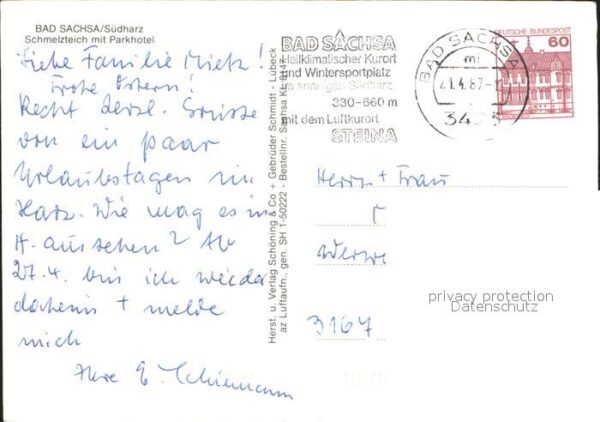 BAD SACHSA/Südharz
Schmelzteich mit Parkhotel
Liebe Familie Mietz!
Frohe Ostern!
Recht herzl. Grüsse
von ein paar
Urlaubstagen im
Harz. Wie mag es in
H. aussehen? Ab
27.4. bin ich wieder
daheim + melde
mich
Ihre E. Schiemann
Herst. u. Verlag Schöning & Co + Gebrüder Schmidt - Lübeck
az Luftaufn., gen. SH 1-50222 - Bestellnr. Sachsa KL 8147
BAD SACHSA
Heilklimatischer Kurort
und Wintersportplatz
im sonnigen Südharz
330-660 m
mit dem Luftkurort
STEINA
BAD SACHSA
21.4.87
3423
DEUTSCHE BUNDESPOST
60
Herrn + Frau
3167
privacy protection
Datenschutz